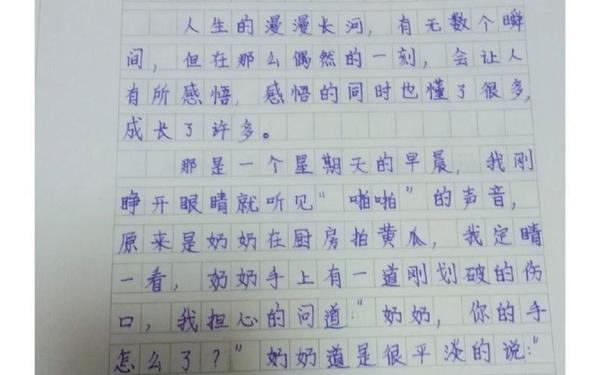 人生的漫漫长河，有无数个瞬
间，但在那么偶然的一刻，会让人
有所感悟，感悟的同时也懂了很多，
成长了许多。
那是一个星期天的早晨，我刚
睁开眼睛就听见“啪啪”的声音，
原来是奶奶在厨房拍黄瓜，我定睛
一看，奶奶手上有一道刚划破的伤
口，我担心的问道：“奶奶，你的手
怎么了？”奶奶道是很平淡的说：“